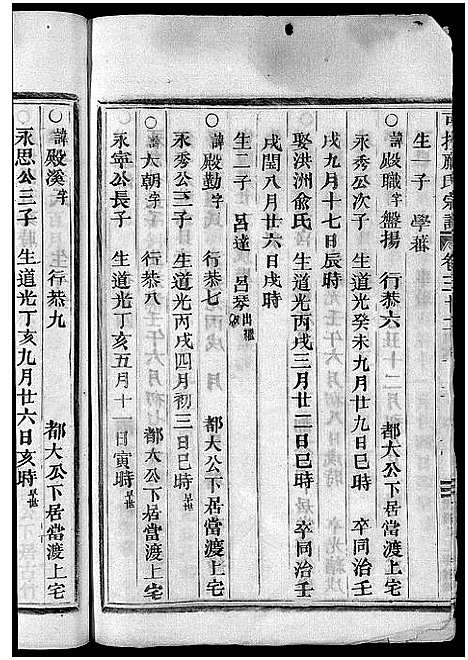 氏宗譜 卷三
生一子 學蕃
○諱殿職字盤揚 行恭六 都大公下居當渡上宅
永秀公次子 生道光癸未九月廿九日巳時 卒同治壬
戌九月十七日辰時
娶洪洲俞氏 生道光丙戌三月廿二日巳時 卒同治壬
戌閏八月廿六日戌時
生二子 呂達 呂琴出繼
○諱殿勤字 行恭七 都大公下居當渡上宅
永秀公三子 生道光丙戌四月初三日巳時早世
○諱大朝字 行恭八 都大公下居當渡上宅
永寧公長子 生道光丁亥五月十一日寅時早世
○諱殿溪字 行恭九 都大公下居當渡上宅
永思公三子 生道光丁亥九月廿六日亥時早世